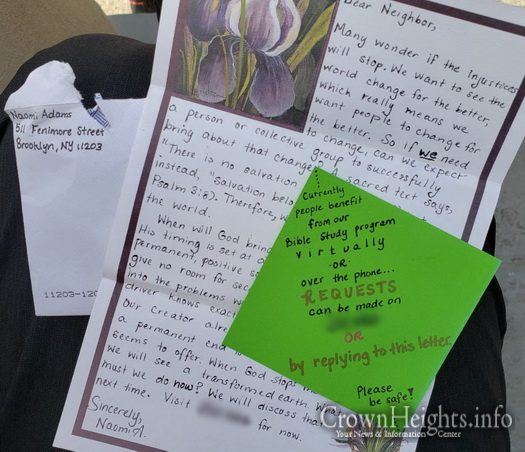 Naomi Adams
511 Fenimore Street
Brooklyn, NY 11203
11203-120
Dear Neighbor,
Many wonder if the injustices
will stop. We want to see the
world change for the better,
which really means we
want people to change for
the better. So if we need
a person or collective group to successfully
bring about that change? A sacred text says,
to change, can we expect
"There is no salvation
instead, "Salvation belo
Psalm 3:8). Therefore, w
the world.
When will God bring
His timing is set at a
permanent, positive so
give no room for sec
into the problems w
driver knows exact
Our Creator alre
a permanent end
seems to offer. When God stops
we will see a transformed earth. What
must we do now? We will discuss that
next time. Visit for now.
Sincerely,
Naomi A.
Currently
people benefit
from our
Bible Study program
virtually
-OR-
over the phone...
REQUESTS
can be made on
OR
by replying to this letter.
Please
be safe!
CrownHeights.info
Your News & Information Center